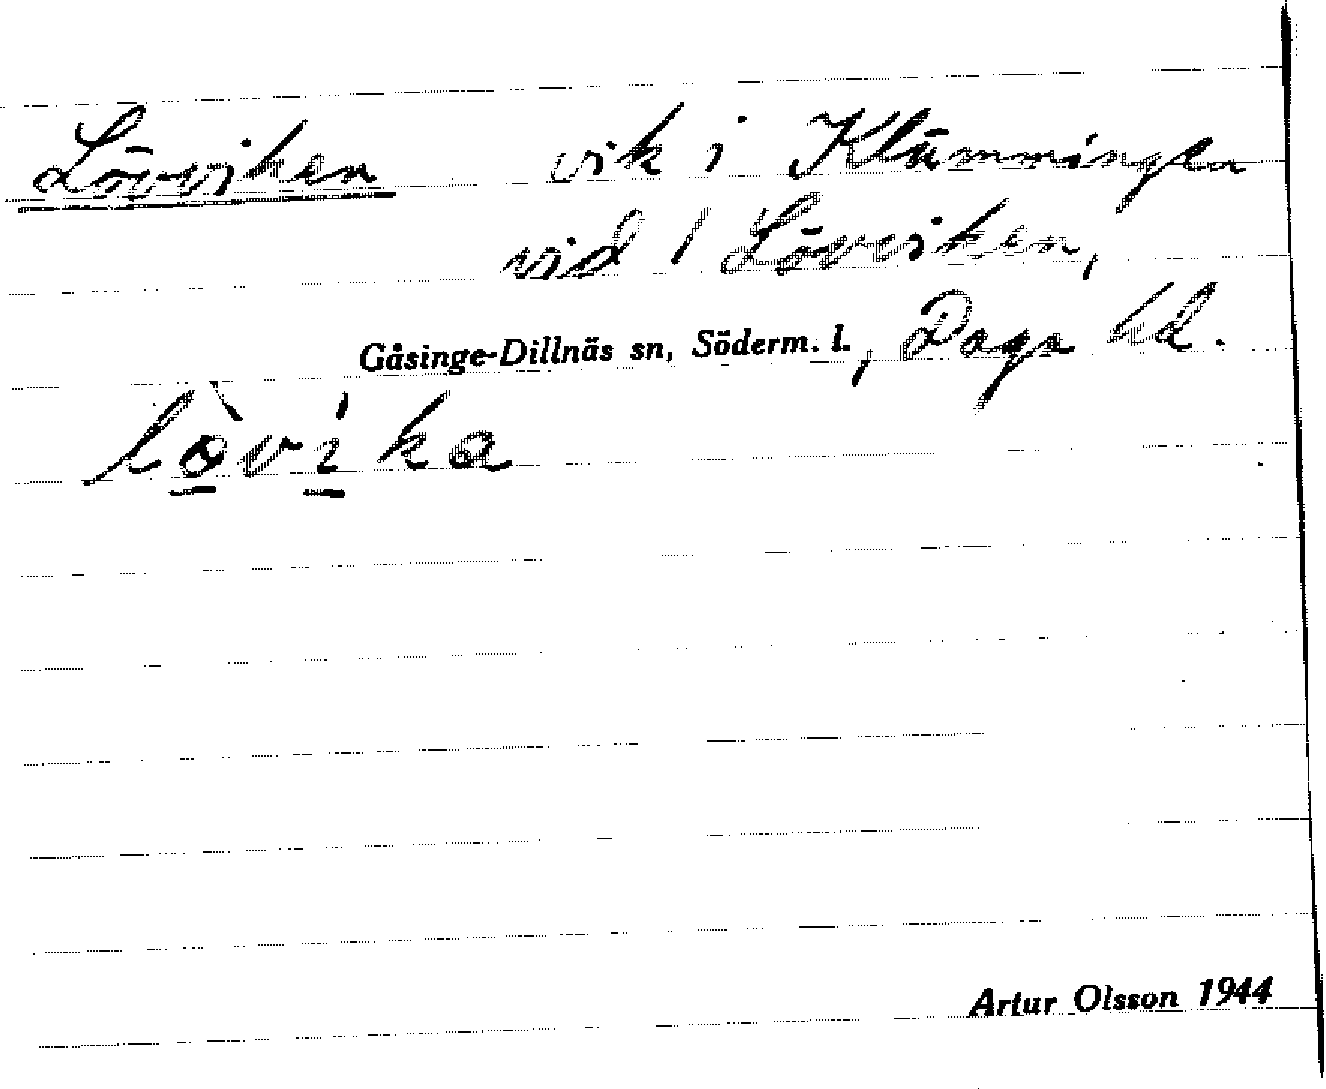 Lövviken vik i Klämmingen
vid 1 Lövviken,
Gåsinge-Dillnäs sn, Söderm. l., Daga hd.
lò̱vi̱ka
Artur Olsson 1944